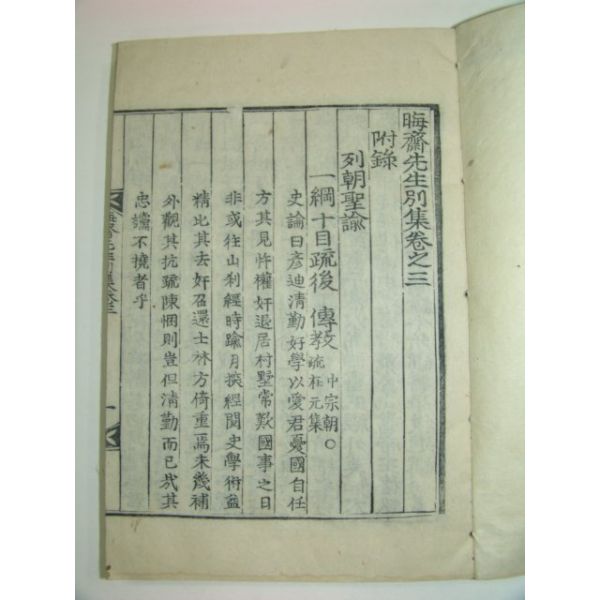 晦齋先生別集卷之三
附錄
列朝聖諭
一綱十目疏後 傳敎 中宗朝○疏在元集
史論曰彦迪清勤好學以愛君憂國自任
方其見忤權奸退居村墅常歎國事之日
非或往山刹經時踰月探經閱史學術益
精比其去奸召還士林方倚重焉未幾補
外觀其抗疏陳悃則豈但清勤而已㢤其
忠讜不撓者乎
晦齋先生別集卷三
一